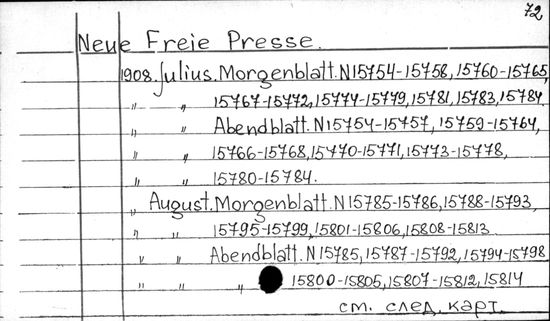 72
Neue Freie Presse.
1908. Julius. Morgenblatt. N15754-15758, 15760-15765,
" " 15767-15772, 15774-15779, 15781, 15783, 15784
" " Abendblatt. N15754-15757, 15759-15764,
" " 15766-15768, 15770-15771, 15773-15778,
" " 15780-15784.
" August. Morgenblatt. N15785-15786, 15788-15793,
" " 15795-15799, 15801-15806, 15808-15813
" " Abendblatt. N15785, 15787-15792, 15794-15798
" " " 15800-15805, 15807-15812, 15814
см. след. карт.